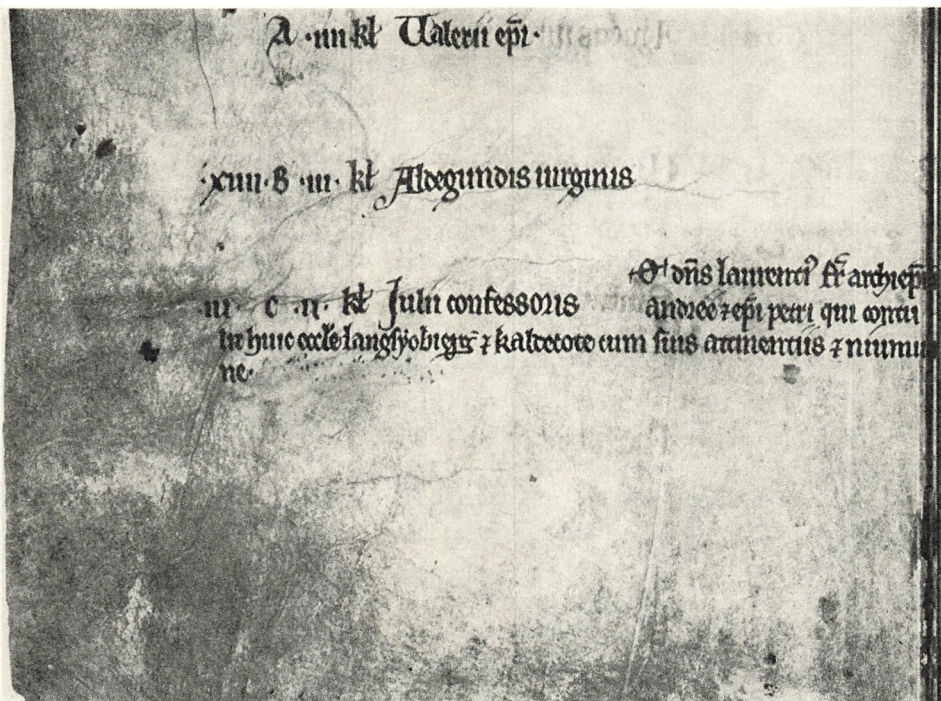 A ·iiii kł Ualerii ep̄i·
·xiiii· B ·iii· kł Aldegundis uirginis
iii· c ·ii· kł Julii confessoris
dn̄s laurenciꝰ fr̄ archiep̄i
andree ⁊ ep̄i petri qui contu
lit huic eccl̄e ⁊ kaltetote cum suis attinentiis ⁊
ne·